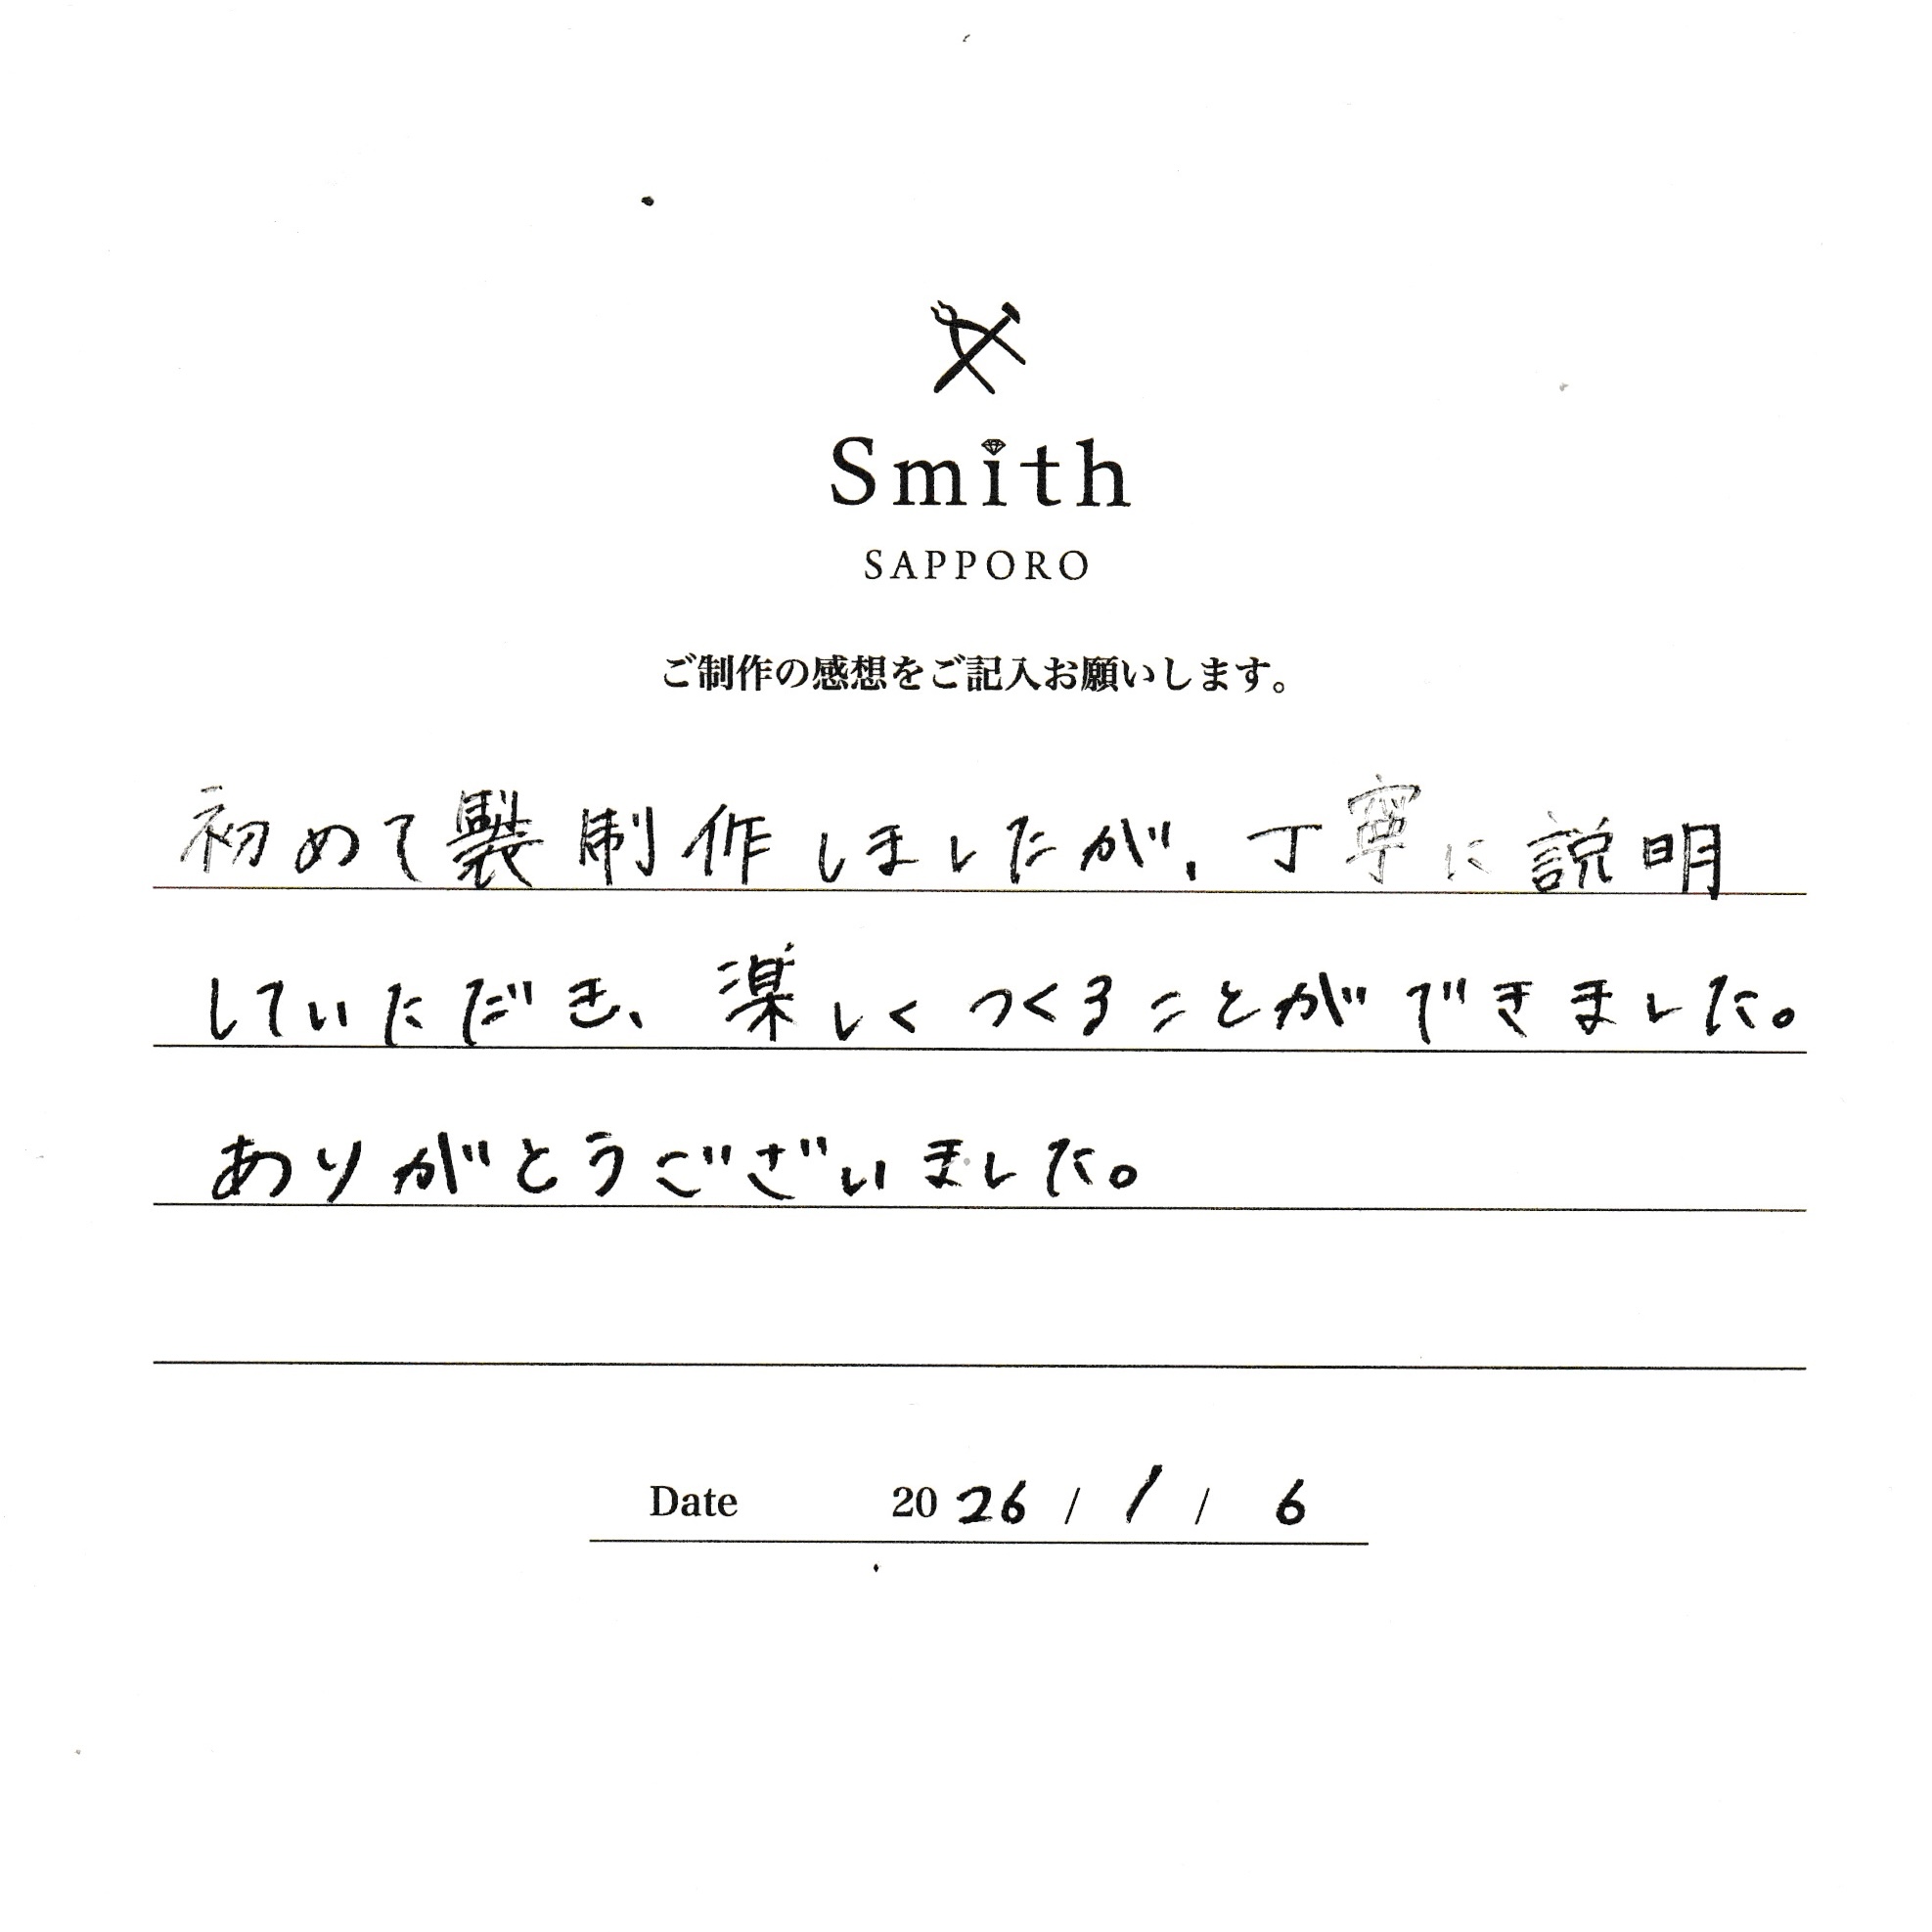 Smith
SAPPORO
ご制作の感想をご記入お願いします。
初めて製制作しましたが、丁寧に説明
していただき、楽しくつくることができました。
ありがとうございました。
Date 2026 / 1 / 6